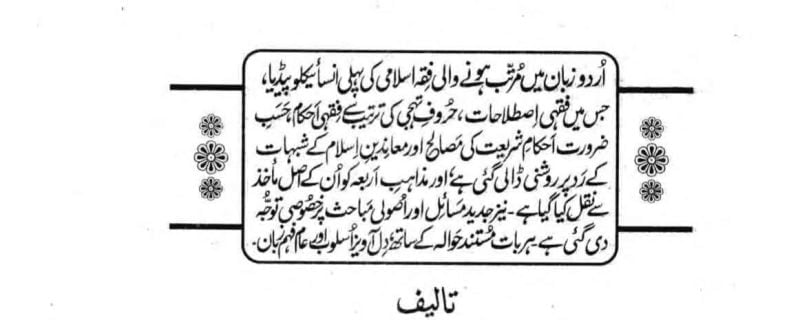 اُردو زبان میں مُرتّب ہونے والی فِقہ اسلامی کی پہلی انسائیکلوپیڈیا،
جس میں فقہی اِصطلاحات، حُروفِ تہجی کی ترتیب سے فِقہی اَحکام، حَسَبِ
ضرورت اَحکامِ شریعت کی مَصالح اور معاندینِ اِسلام کے شبہات
کے رَد پر روشنی ڈالی گئی ہے اور مذاہب اَربعہ کو اُن کے اَصل مآخذ
سے نقل کیا گیا ہے۔ نیز جدید مسَائل اور اُصولی مباحث پر خصُوصی توجّہ
دی گئی ہے، ہر بات مُستند حَوالہ کے ساتھ، دِل آویز اُسلوب اور عام فہم زبان۔
تالیف